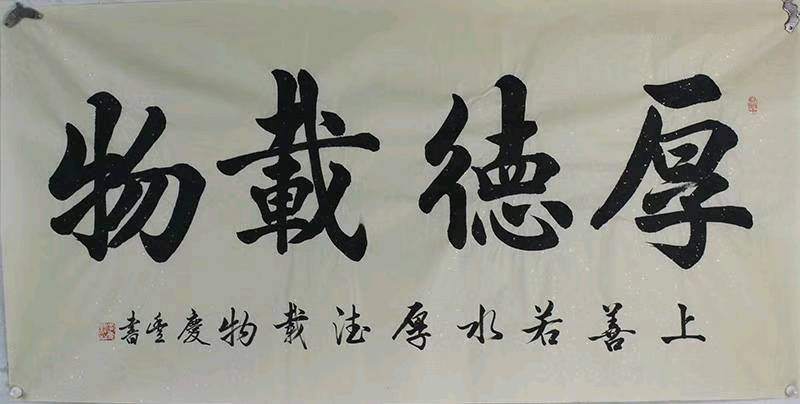 厚德載物
上善若水厚德載物慶雲書